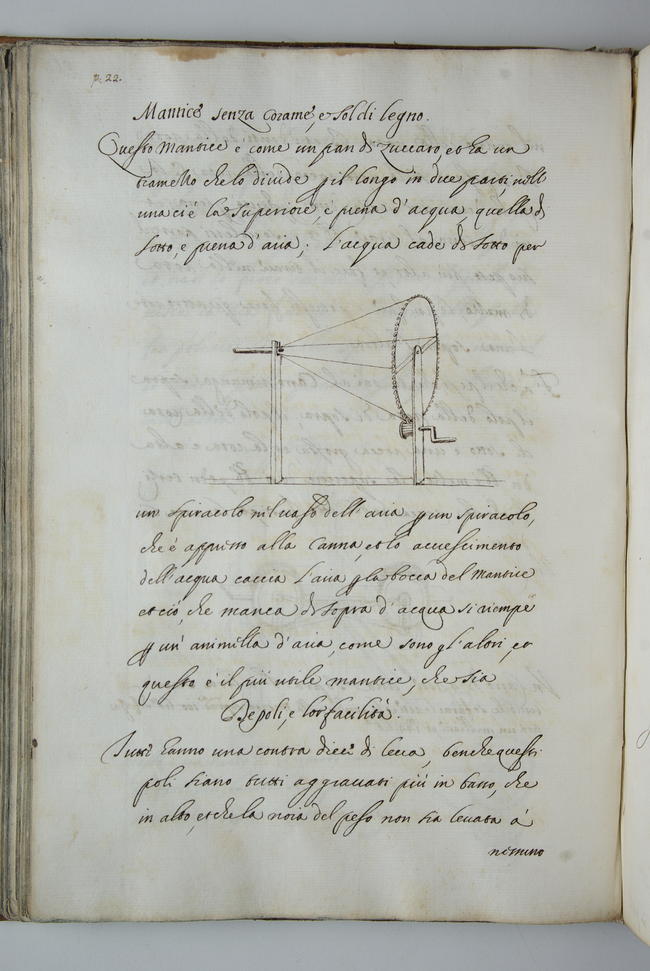 p. 22.
Mantice senza Corame, e sol di legno.
Questo Mantice e come un pan di Zuccaro, et ha un
tramezzo che lo divide p il longo in due parti, nell
una ci é la superiore, é piena d'acqua, quella di
sotto, e piena d'aria; L'acqua cade di sotto per
un spiracolo nel vaso dell'aria p un spiracolo,
che é appresso alla Canna, et lo accrescimento
dell'acqua caccia l'aria p la bocca del Mantice
et ció, che manca di sopra d'acqua si riempe
p un' animella d'aria, come sono gl'altri, et
questo é il piú utile mantice, che sia
De poli, e lor facilitá.
Tutti hanno una contra dieci di leva, benche questi
poli siano tutti aggravati piú in basso, che
in alto, et che la noia del peso non sia levata á
nessuno